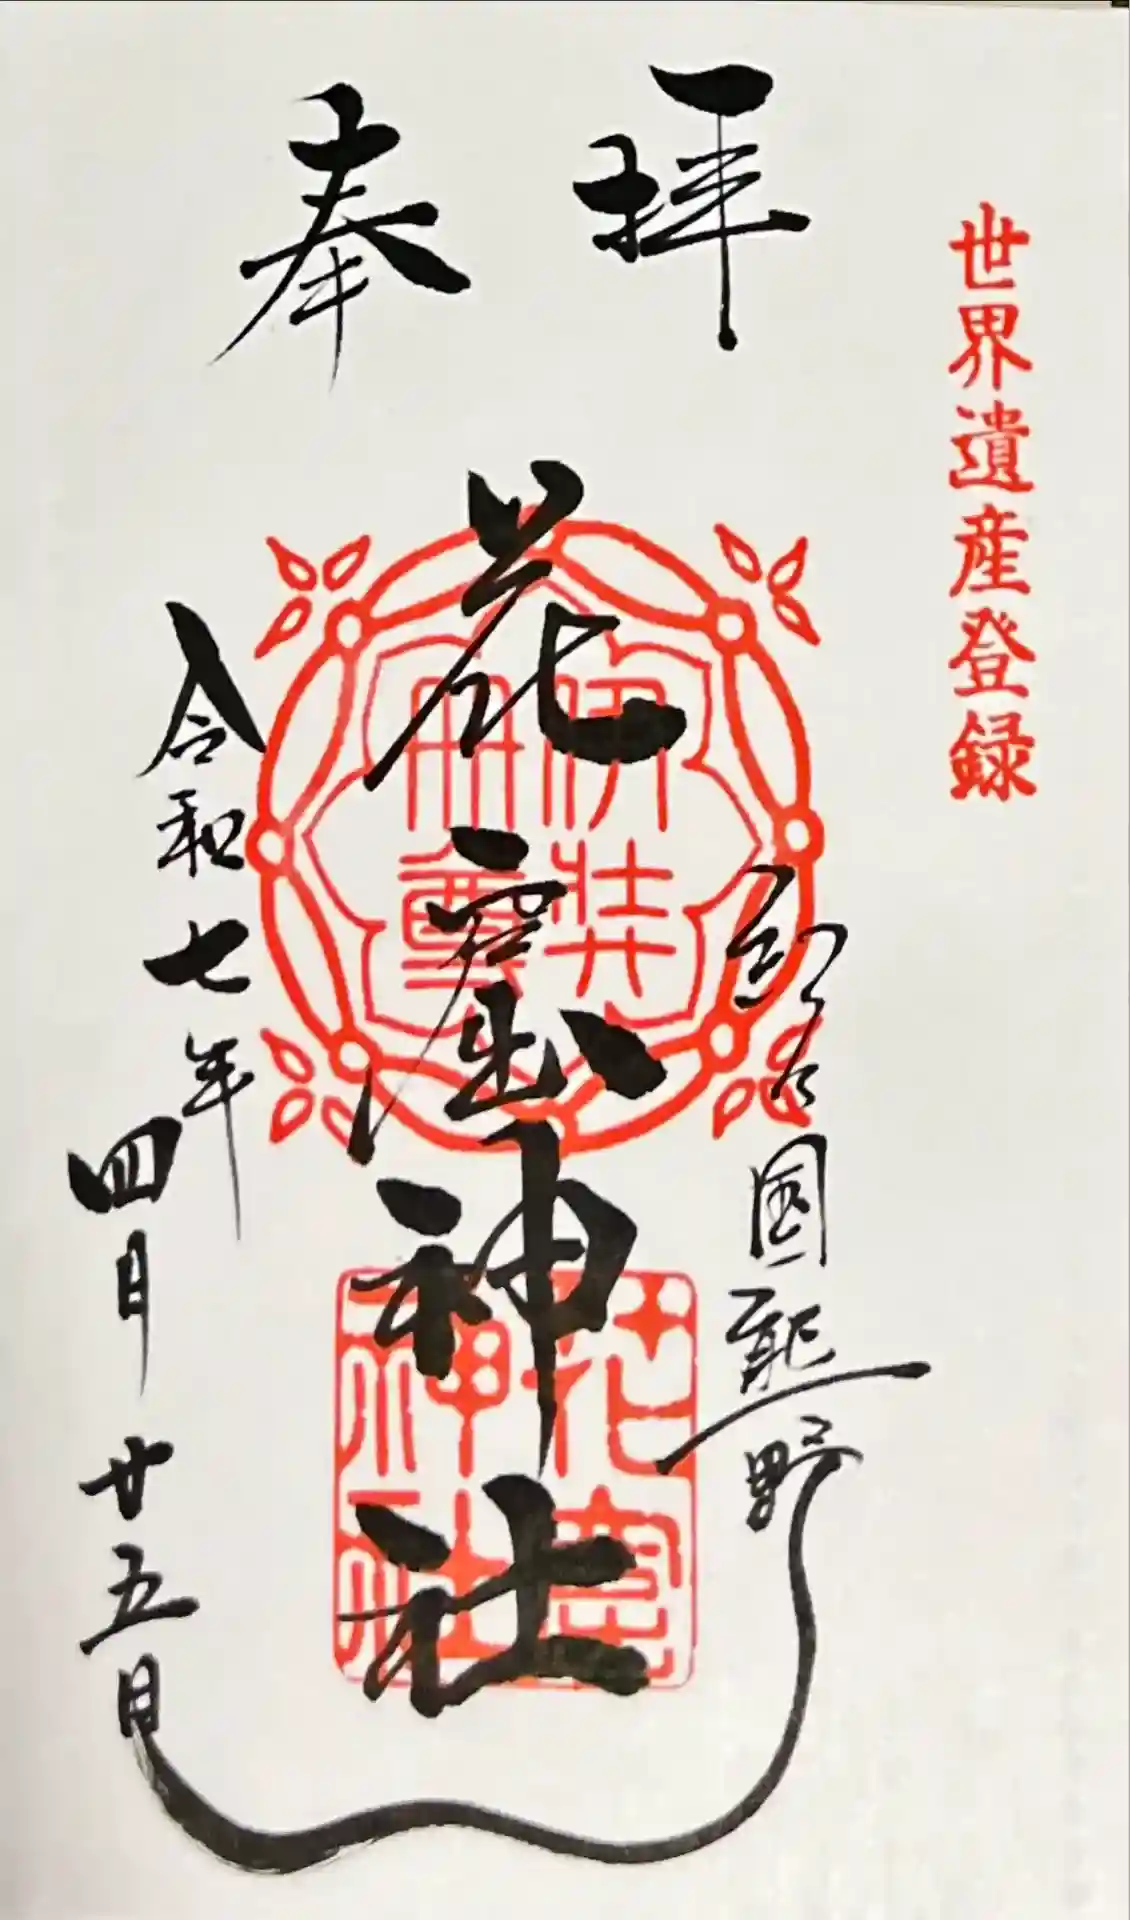 世界遺産登録
奉拝
国熊野
花窟神社
伊弉冊尊
花窟神社
令和七年
四月廿五日